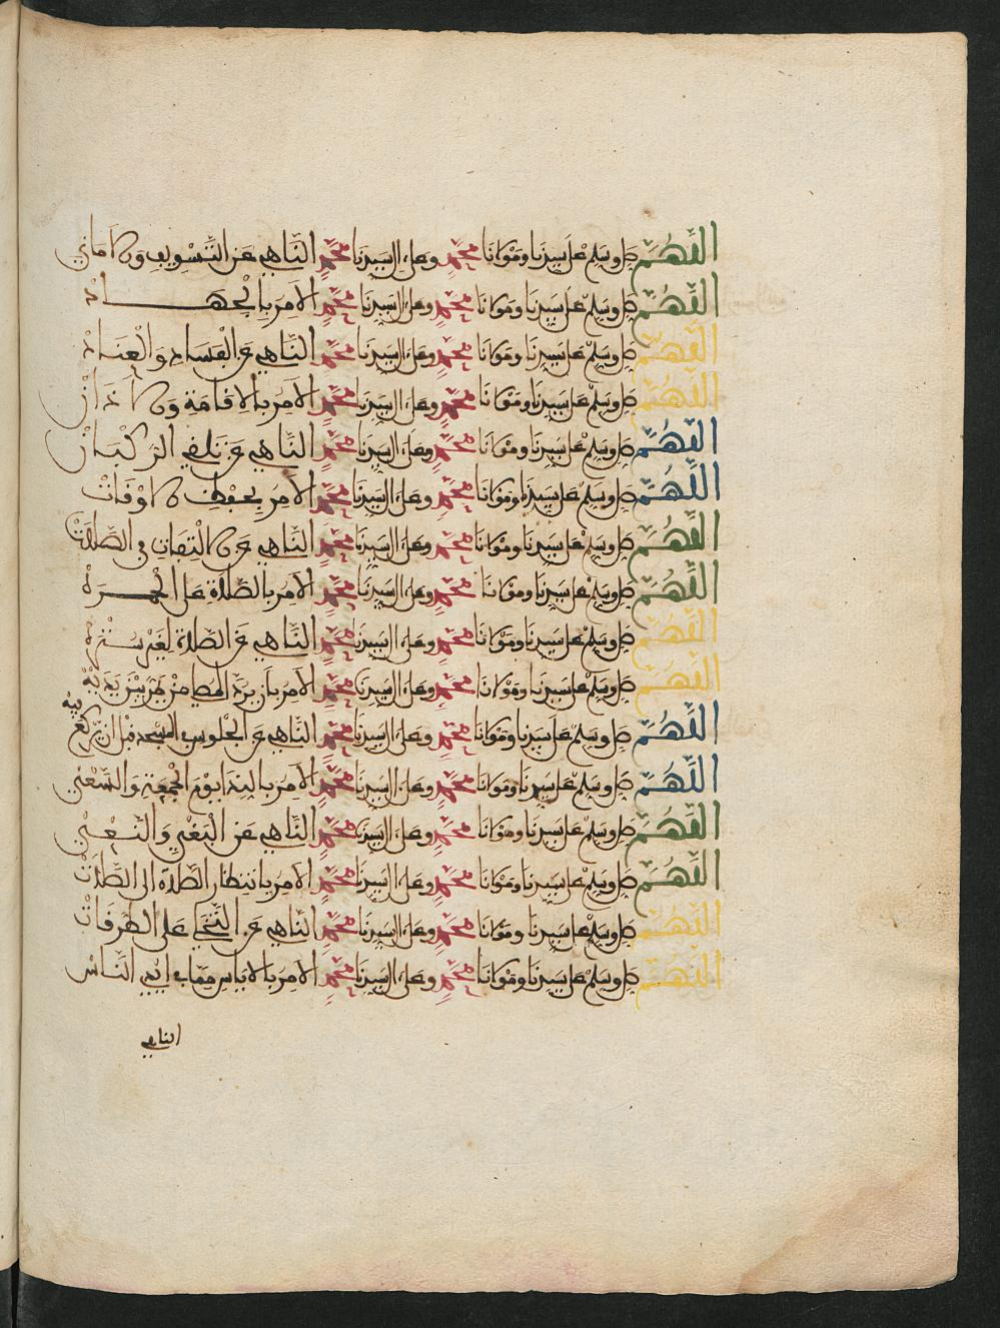 اللهم صل وسلم على سيدنا ومولانا محمد وعلى ال سيدنا محمد الناهي عن التسويف والاماني
اللهم صل وسلم على سيدنا ومولانا محمد وعلى ال سيدنا محمد الامر بالجهاد
اللهم صل وسلم على سيدنا ومولانا محمد وعلى ال سيدنا محمد الناهي عن الفساد والعناد
اللهم صل وسلم على سيدنا ومولانا محمد وعلى ال سيدنا محمد الامر بالاقامة والاذان
اللهم صل وسلم على سيدنا ومولانا محمد وعلى ال سيدنا محمد الناهي عن تلقي الركبان
اللهم صل وسلم على سيدنا ومولانا محمد وعلى ال سيدنا محمد الامر بحفظ الاوقات
اللهم صل وسلم على سيدنا ومولانا محمد وعلى ال سيدنا محمد الناهي عن الالتفات في الصلاة
اللهم صل وسلم على سيدنا ومولانا محمد وعلى ال سيدنا محمد الامر بالصلاة على الخمرة
اللهم صل وسلم على سيدنا ومولانا محمد وعلى ال سيدنا محمد الناهي عن الصلاة لغير سترة
اللهم صل وسلم على سيدنا ومولانا محمد وعلى ال سيدنا محمد الامر بان يرد المصلي من يمر بين يديه
اللهم صل وسلم على سيدنا ومولانا محمد وعلى ال سيدنا محمد الناهي عن الجلوس المسجد قبل ان يركع فيه
اللهم صل وسلم على سيدنا ومولانا محمد وعلى ال سيدنا محمد الامر بالندا يوم الجمعة والسعي
اللهم صل وسلم على سيدنا ومولانا محمد وعلى ال سيدنا محمد الناهي عن البغي والنعي
اللهم صل وسلم على سيدنا ومولانا محمد وعلى ال سيدنا محمد الامر بانتظار الصلاة الى الصلاة
اللهم صل وسلم على سيدنا ومولانا محمد وعلى ال سيدنا محمد الناهي عن على الطرقات
اللهم صل وسلم على سيدنا ومولانا محمد وعلى ال سيدنا محمد الامر بالاياس مما في ايدي الناس
الناهي